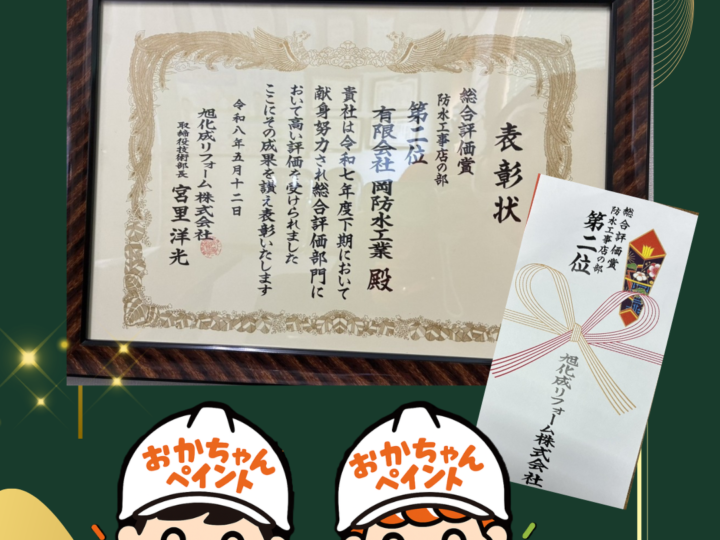 表彰状
総合評価賞
防水工事店の部
第二位
有限会社 岡防水工業 殿
貴社は令和七年度下期において
献身努力され総合評価部門に
おいて高い評価を受けられました
ここにその成果を讃え表彰いたします
令和八年五月十二日
旭化成リフォーム株式会社
取締役技術部長 宮里洋光
総合評価賞
防水工事店の部
第二位
旭化成リフォーム株式会社
おかちゃん
ペイント
おかちゃん
ペイント